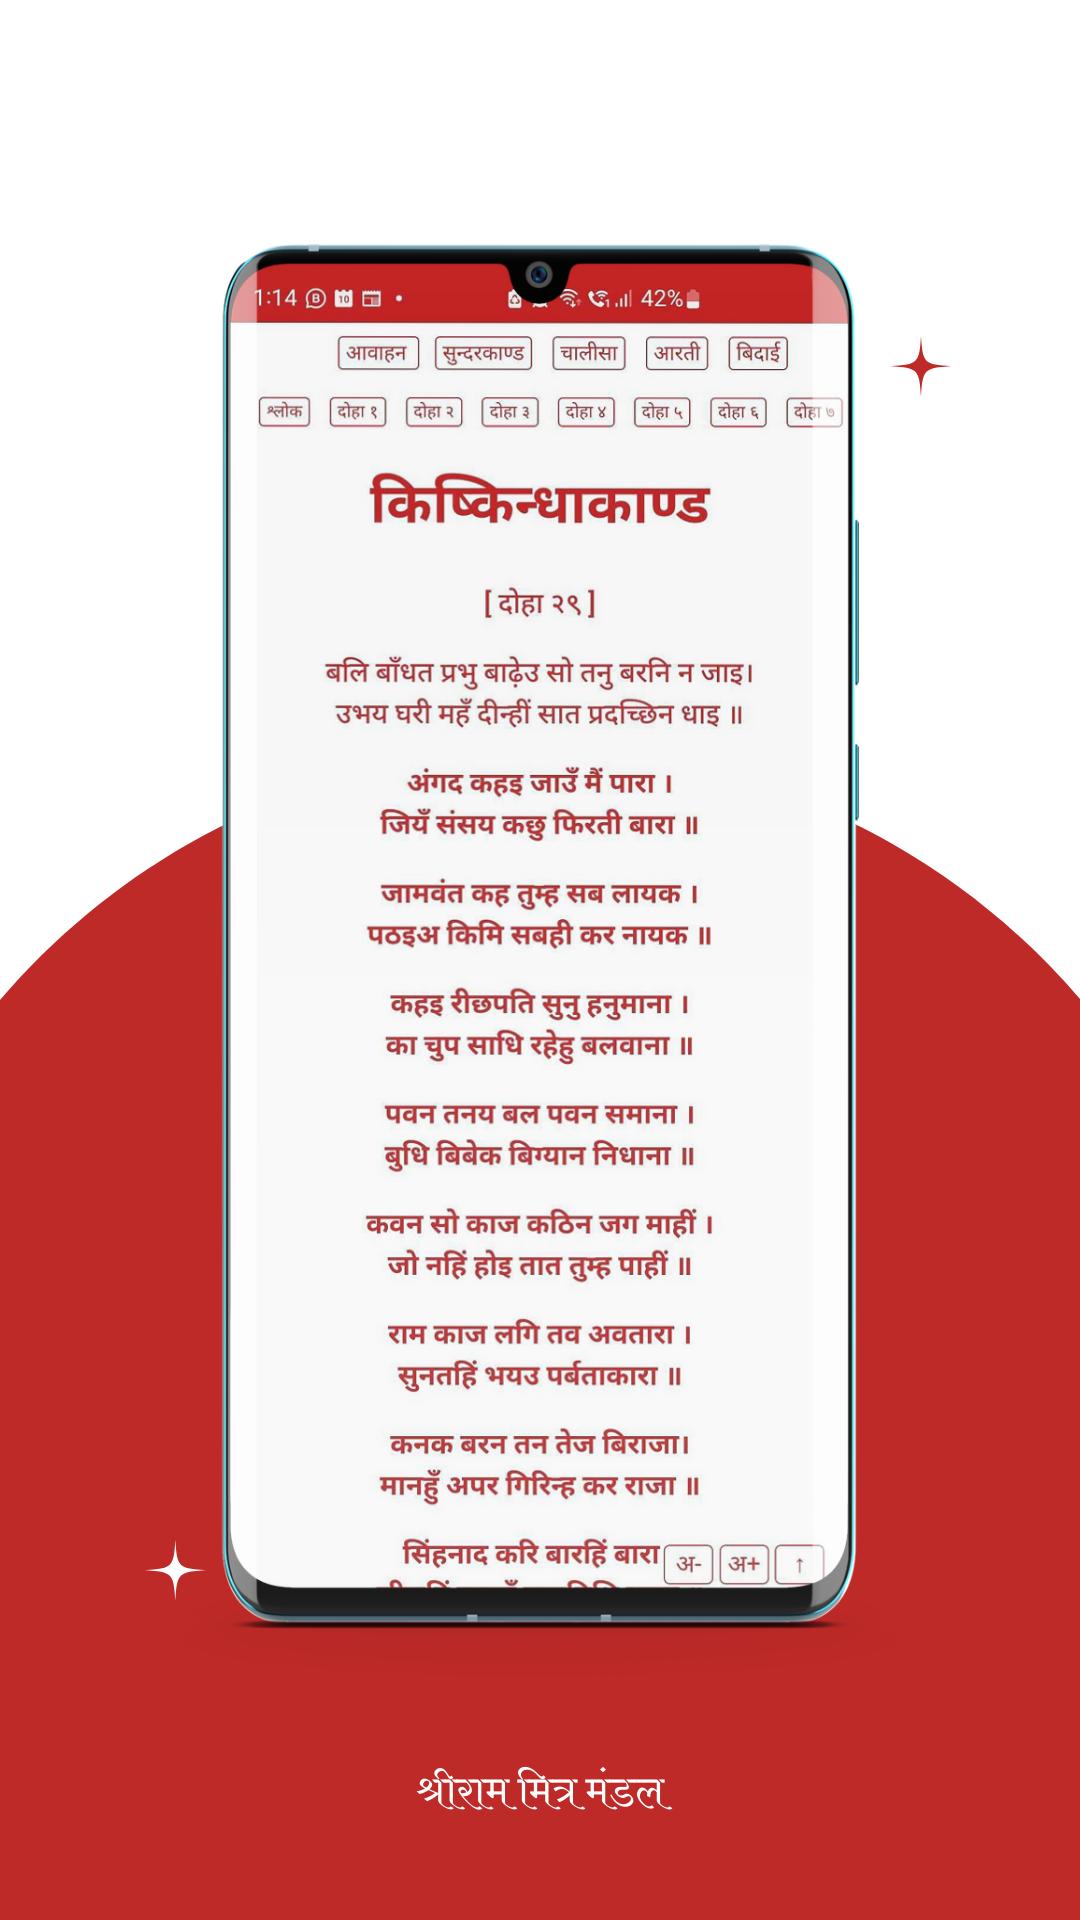 1:14
10
42%
आवाहन सुन्दरकाण्ड चालीसा आरती बिदाई
श्लोक दोहा १ दोहा २ दोहा ३ दोहा ४ दोहा ५ दोहा ६ दोहा ७
किष्किन्धाकाण्ड
[ दोहा २९ ]
बलि बाँधत प्रभु बाढ़ेउ सो तनु बरनि न जाइ।
उभय घरी महँ दीन्हीं सात प्रदच्छिन धाइ ॥
अंगद कहइ जाउँ मैं पारा ।
जियँ संसय कछु फिरती बारा ॥
जामवंत कह तुम्ह सब लायक ।
पठइअ किमि सबही कर नायक ॥
कहइ रीछपति सुनु हनुमाना ।
का चुप साधि रहेहु बलवाना ॥
पवन तनय बल पवन समाना ।
बुधि बिबेक बिग्यान निधाना ॥
कवन सो काज कठिन जग माहीं ।
जो नहिं होइ तात तुम्ह पाहीं ॥
राम काज लगि तव अवतारा ।
सुनतहिं भयउ पर्बताकारा ॥
कनक बरन तन तेज बिराजा।
मानहुँ अपर गिरिन्ह कर राजा ॥
सिंहनाद करि बारहिं बारा
अ- अ+ ↑
श्रीराम मित्र मंडल